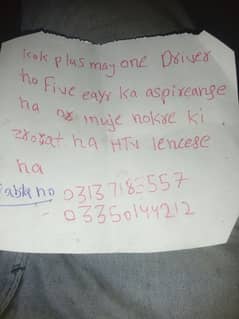 kok plus may one Driver
ho Five eayr ka aspireange
ha or muje nokre ki
zrorat ha HTV lencese
ha
rabta no 03137183557
03350144212